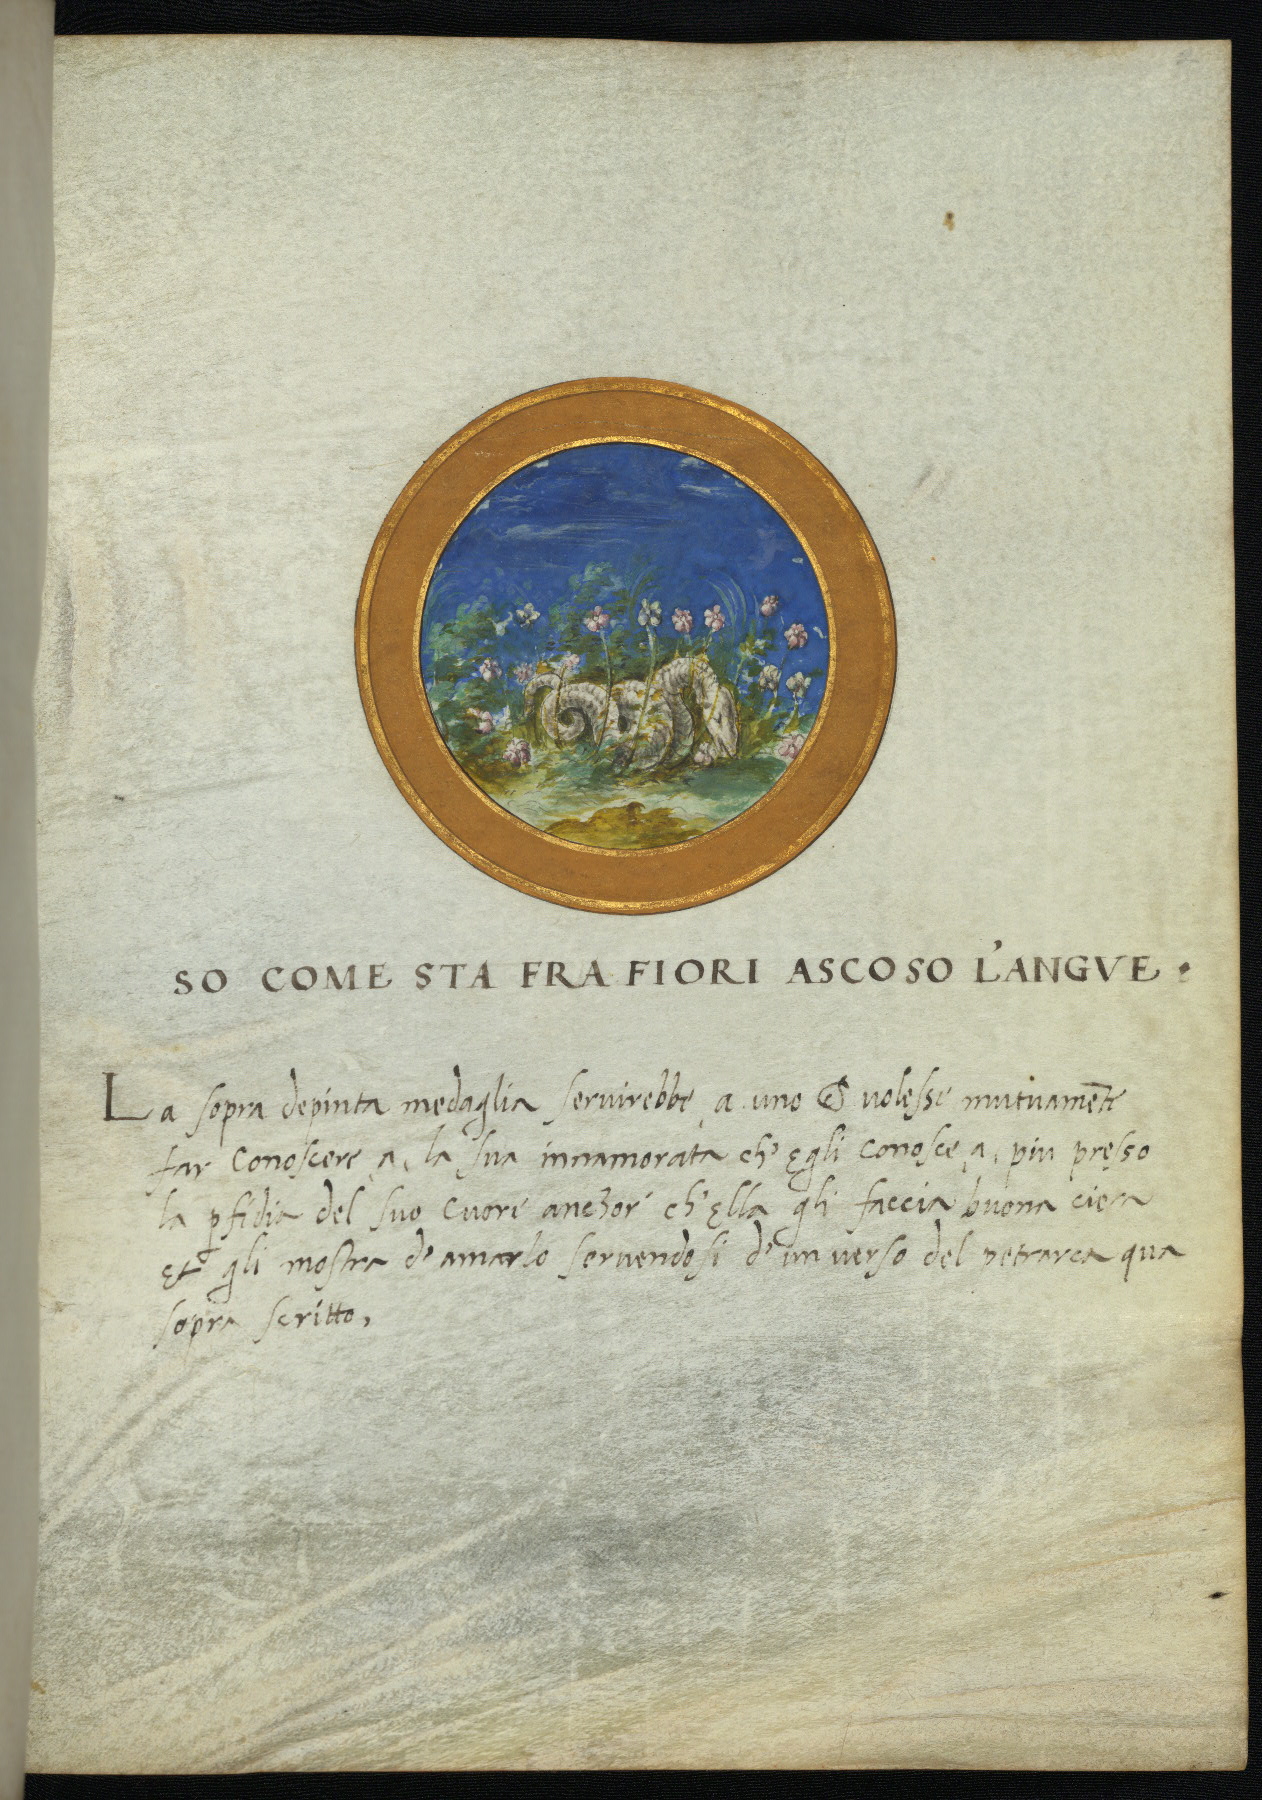 SO COME STA FRA FIORI ASCOSO L'ANGVE .
La sopra depinta medaglia seruirebbe a uno volesse
far conoscere a la sua innamorata ch' egli conosce a piu presso
la pfidia del suo cuore anchor ch' ella gli faccia buona ciera
et gli mostra d' amarlo seruendosi d' un uerso del petrarca qua
sopra scritto,